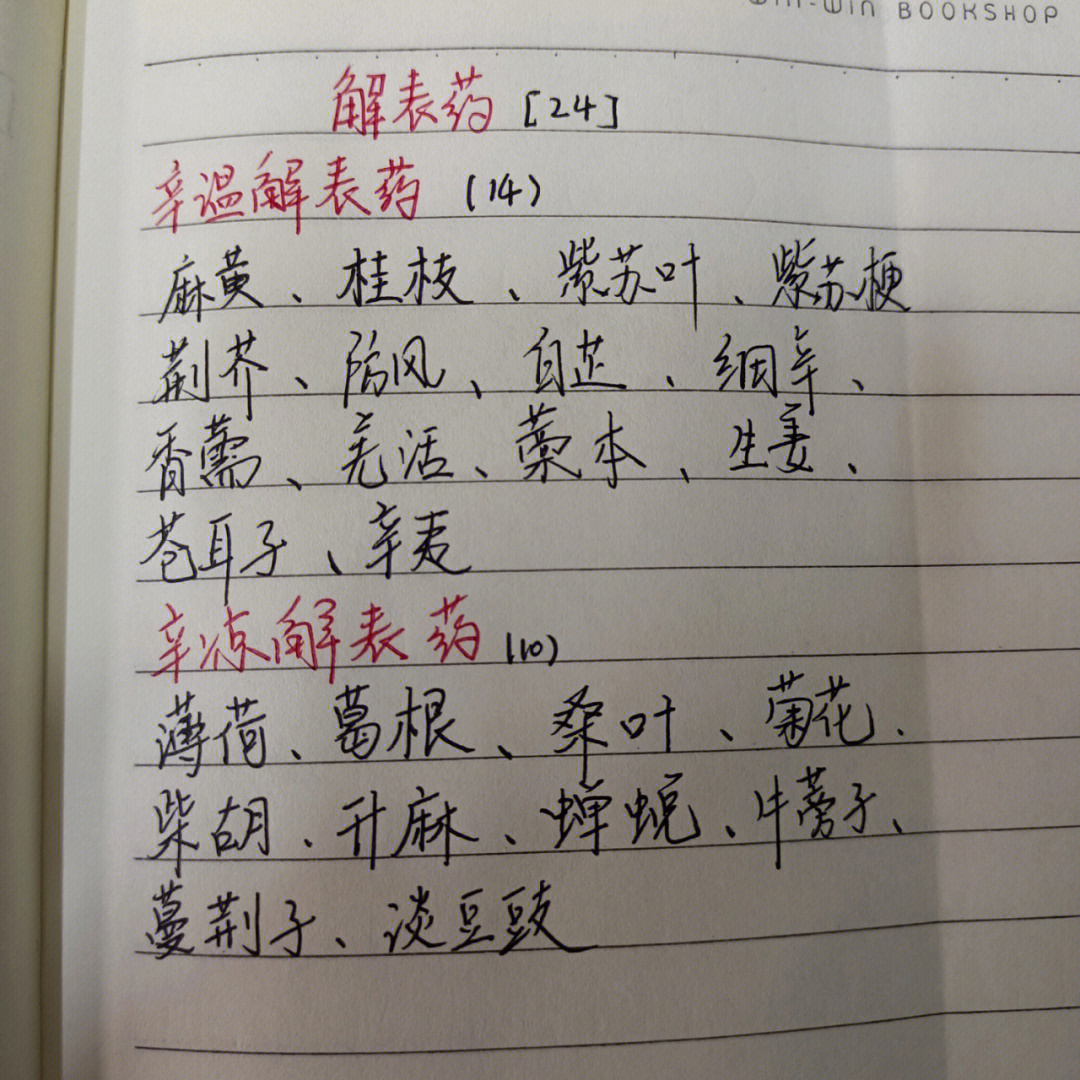 WIN-WIN BOOKSHOP
解表药 [24]
辛温解表药 (14)
麻黄、桂枝、紫苏叶、紫苏梗
荆芥、防风、白芷、细辛、
香薷、羌活、藁本、生姜、
苍耳子、辛夷
辛凉解表药 (10)
薄荷、葛根、桑叶、菊花、
柴胡、升麻、蝉蜕、牛蒡子、
蔓荆子、淡豆豉